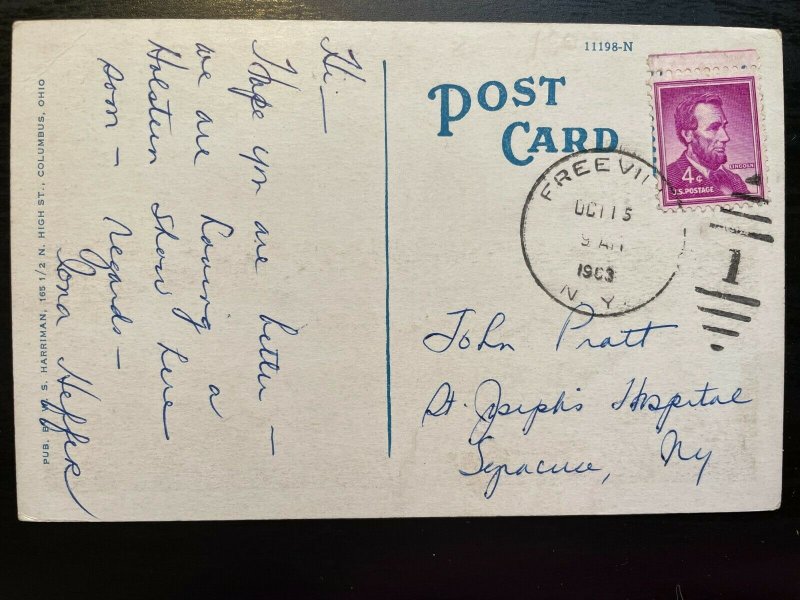 Hi—
Hope you are better —
we are having a
Holstein Show here
soon — regards —
Iona Heffer
PUB. BY W. S. HARRIMAN, 165 1/2 N. HIGH ST., COLUMBUS, OHIO
11198-N
POST
CARD
4¢
LINCOLN
U.S. POSTAGE
FREEVILL
OCT 15
9 AM
1963
N. Y.
1
John Pratt
St. Joseph's Hospital
Syracuse, Ny